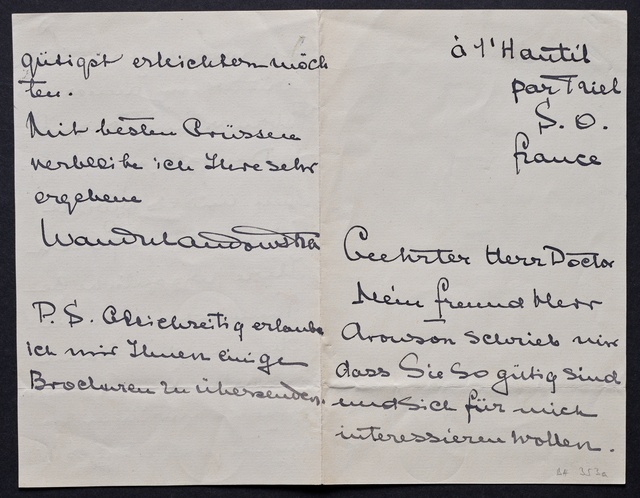 à l'Hautil
par Triel
S. O.
france
Geehrter Herr Doctor
Mein freund Herr
Arowson schrieb mir
dass Sie so gütig sind
und sich für mich
interessieren wollen.
gütigst erleichtern möch
ten.
Mit besten Grüssen
verbleibe ich Ihre sehr
ergebene
Wanda Landowska
P. S. Gleichzeitig erlaube
ich mir Ihnen einige
Brochuren zu übersenden.